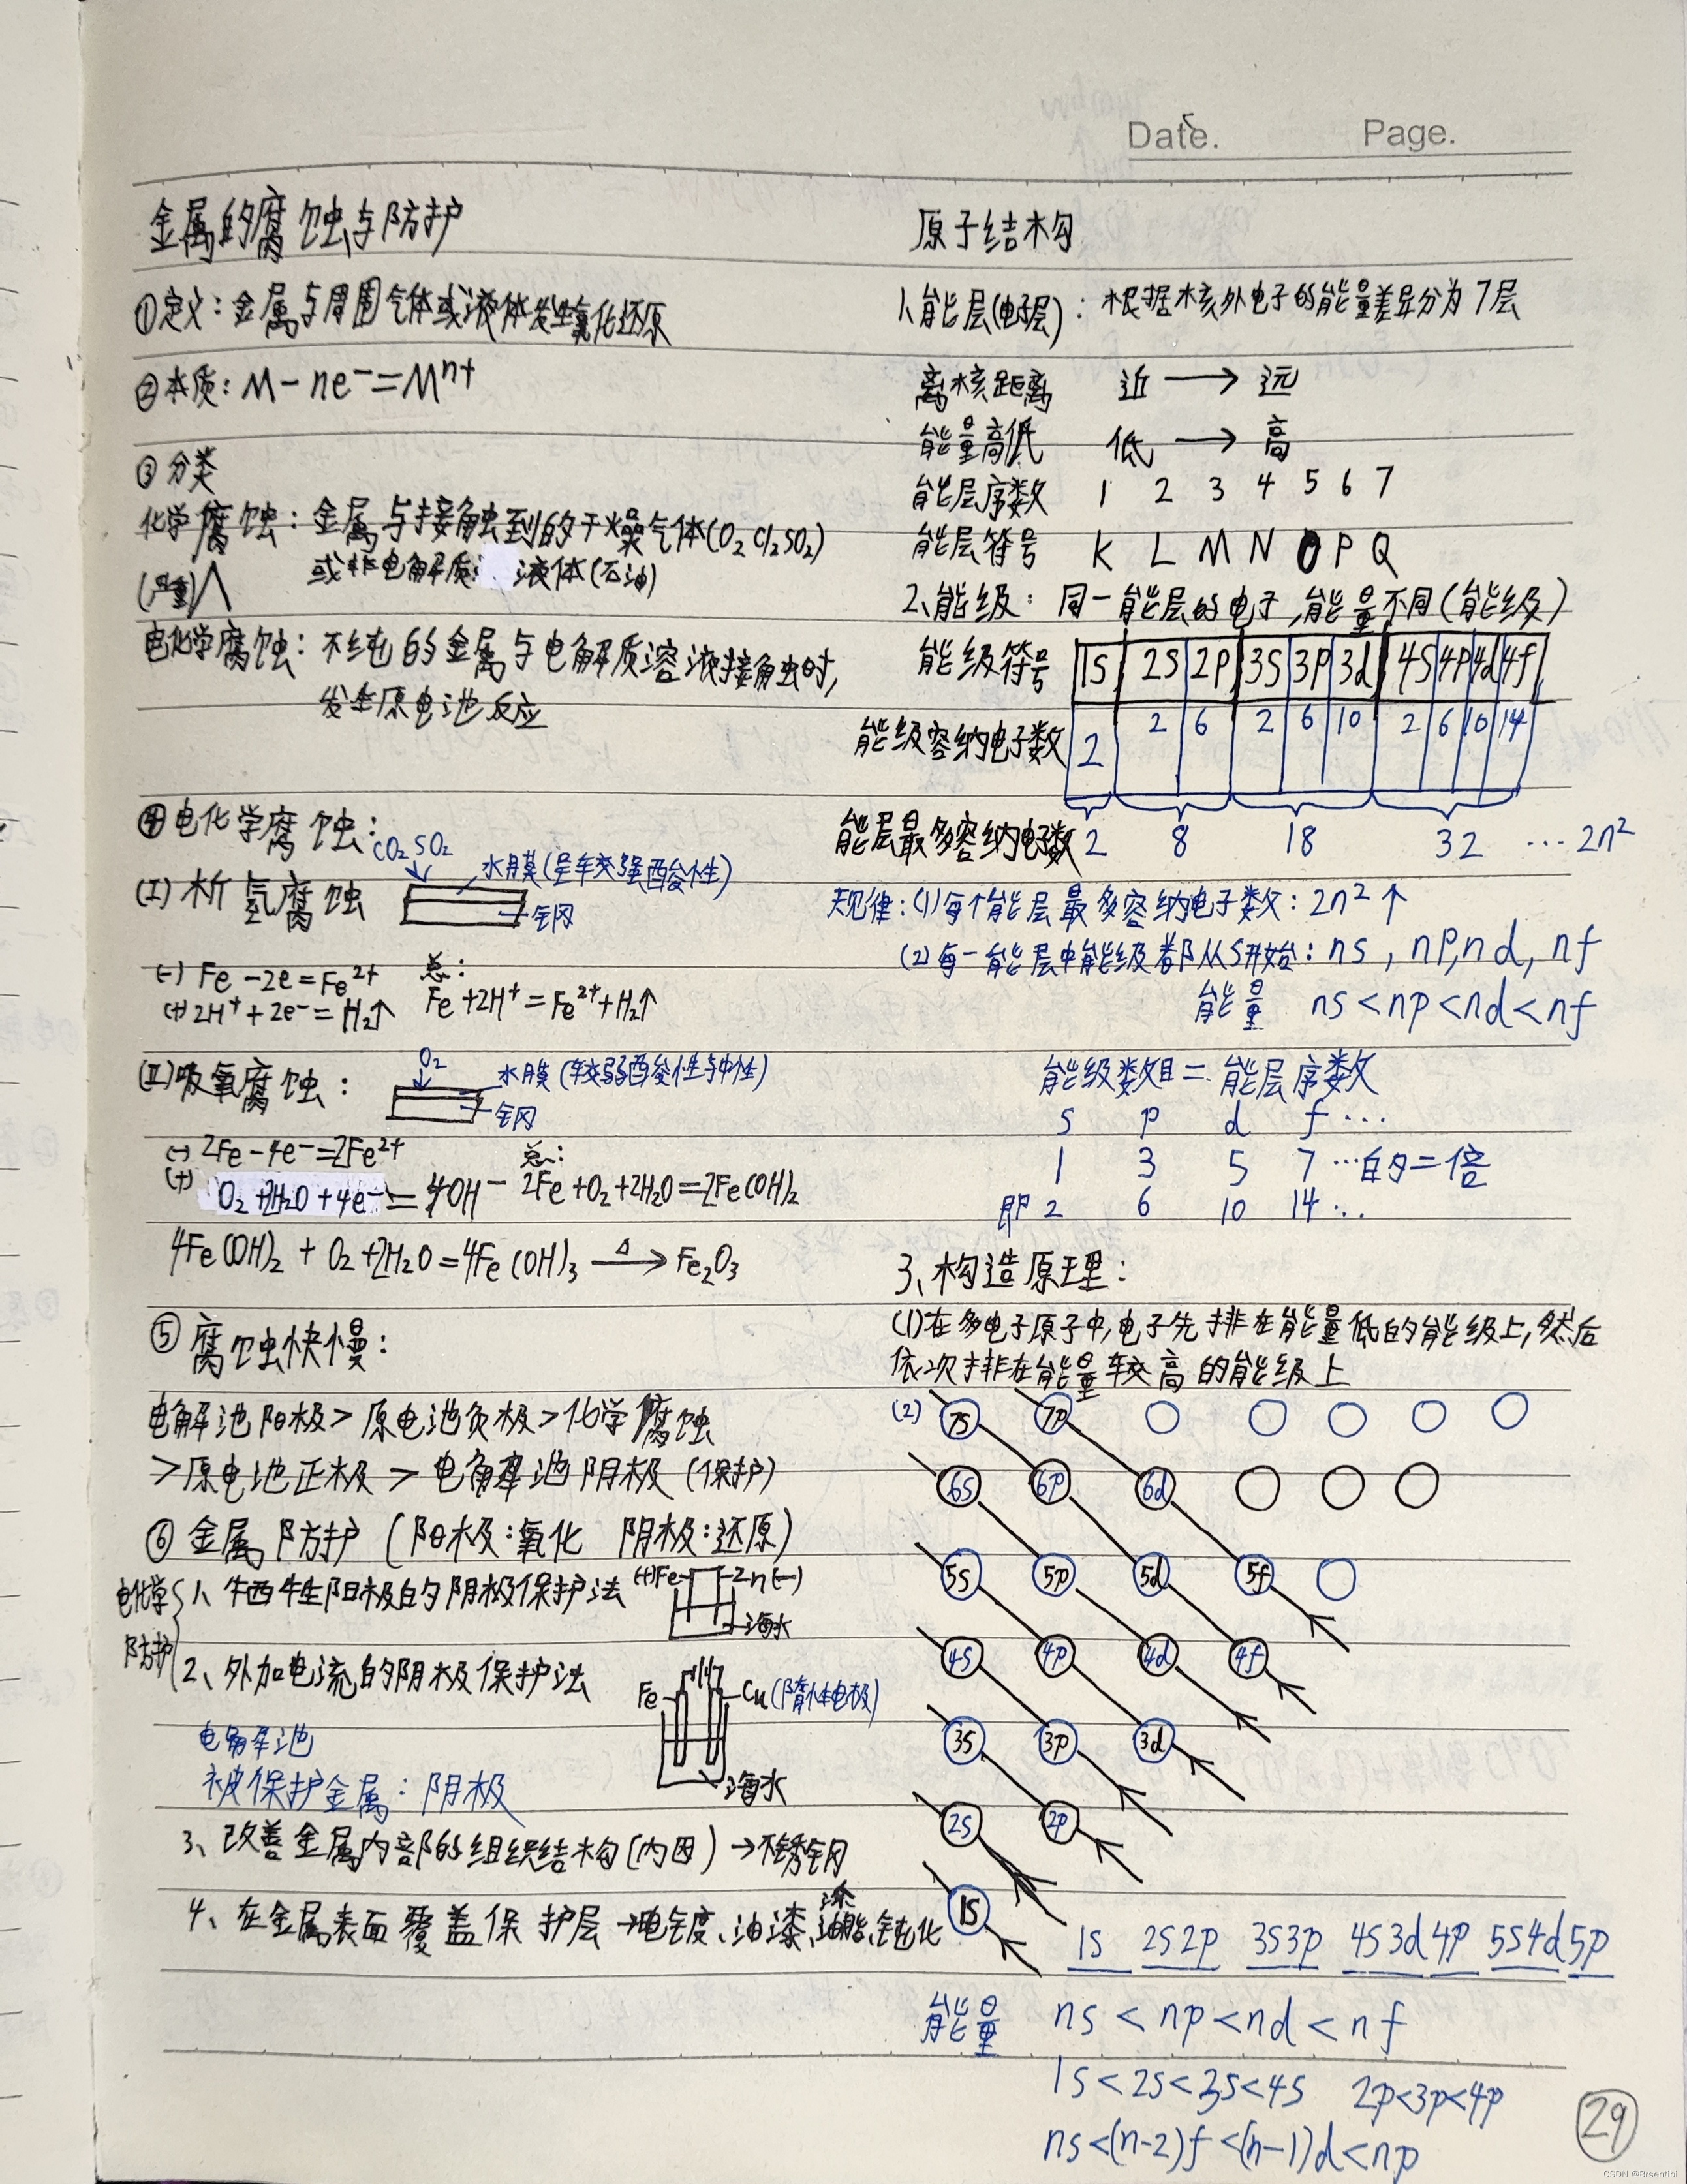 Date. Page.
金属的腐蚀与防护
①定义：金属与周围气体或液体发生氧化还原
②本质：M－ne⁻＝Mⁿ⁺
③分类
化学腐蚀：金属与接触到的干燥气体(O₂ Cl₂ SO₂)
或非电解质 液体(石油)
(严重)∧
电化学腐蚀：不纯的金属与电解质溶液接触时,
发生原电池反应
④电化学腐蚀：
CO₂ SO₂
(I)析氢腐蚀
水膜(呈较强酸性)
钢
(-) Fe －2e＝Fe²⁺ 总：
(+) 2H⁺＋2e⁻＝H₂↑ Fe＋2H⁺＝Fe²⁺＋H₂↑
(II)吸氧腐蚀：
O₂
水膜(较弱酸性与中性)
钢
(-) 2Fe－4e⁻＝2Fe²⁺ 总：
(+) O₂＋2H₂O＋4e⁻＝4OH⁻ 2Fe＋O₂＋2H₂O＝2Fe(OH)₂
4Fe(OH)₂＋O₂＋2H₂O＝4Fe(OH)₃ △→ Fe₂O₃
⑤腐蚀快慢：
电解池阳极＞原电池负极＞化学腐蚀
＞原电池正极＞电解池阴极(保护)
⑥金属防护(阳极：氧化 阴极：还原)
电化学防护
1、牺牲阳极的阴极保护法
(+)Fe Zn(-)
海水
2、外加电流的阴极保护法
Fe Cu(惰性电极)
海水
电解池
被保护金属：阴极
3、改善金属内部的组织结构(内因)→不锈钢
4、在金属表面覆盖保护层→电镀、油漆、钝化
原子结构
1、能层(电子层)：根据核外电子的能量差异分为7层
离核距离 近→远
能量高低 低→高
能层序数 1 2 3 4 5 6 7
能层符号 K L M N O P Q
2、能级：同一能层的电子,能量不同(能级)
能级符号 1s 2s 2p 3s 3p 3d 4s 4p 4d 4f
能级容纳电子数 2 2 6 2 6 10 2 6 10 14
能层最多容纳电子数 2 8 18 32 …2n²
规律：(1)每个能层最多容纳电子数：2n²个
(2)每一能层中能级都从s开始：ns, np, nd, nf
能量 ns＜np＜nd＜nf
能级数目＝能层序数
s p d f …
1 3 5 7 …的二倍
即 2 6 10 14 …
3、构造原理：
(1)在多电子原子中,电子先排在能量低的能级上,然后
依次排在能量较高的能级上
(2) 7s 7p
6s 6p 6d
5s 5p 5d 5f
4s 4p 4d 4f
3s 3p 3d
2s 2p
1s
1s 2s2p 3s3p 4s3d4p 5s4d5p
能量 ns＜np＜nd＜nf
1s＜2s＜3s＜4s 2p＜3p＜4p
ns＜(n-2)f＜(n-1)d＜np
29
CSDN @Brsentibi